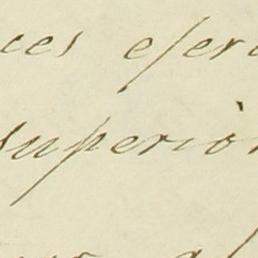 ces ejerc
superior